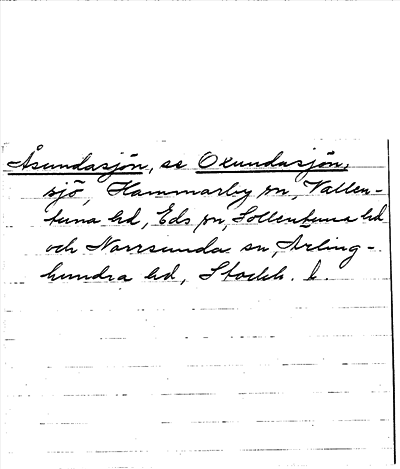 Åsundasjön, se Oxundasjön,
sjö, Hammarby sn, Vallen-
tuna hd, Eds sn, Sollentuna hd
och Norrsunda sn, Ärling-
hundra hd, Stockh. l.